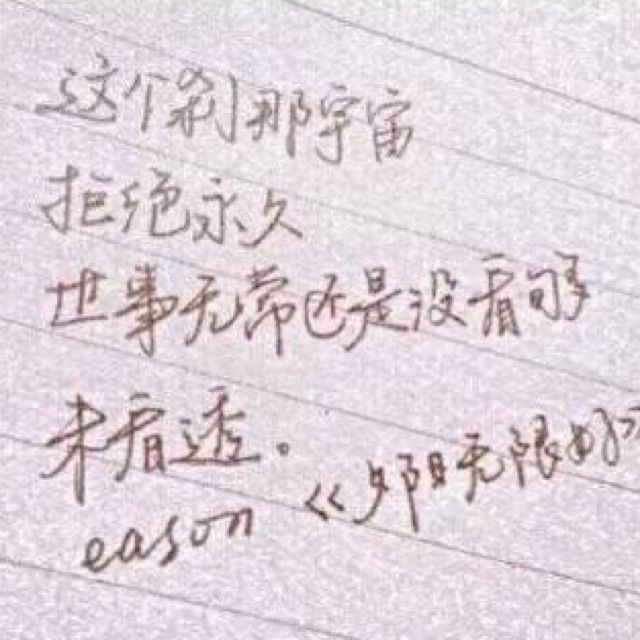 这个刹那宇宙
拒绝永久
世事无常还是没看够
未看透.
eason《夕阳无限好》